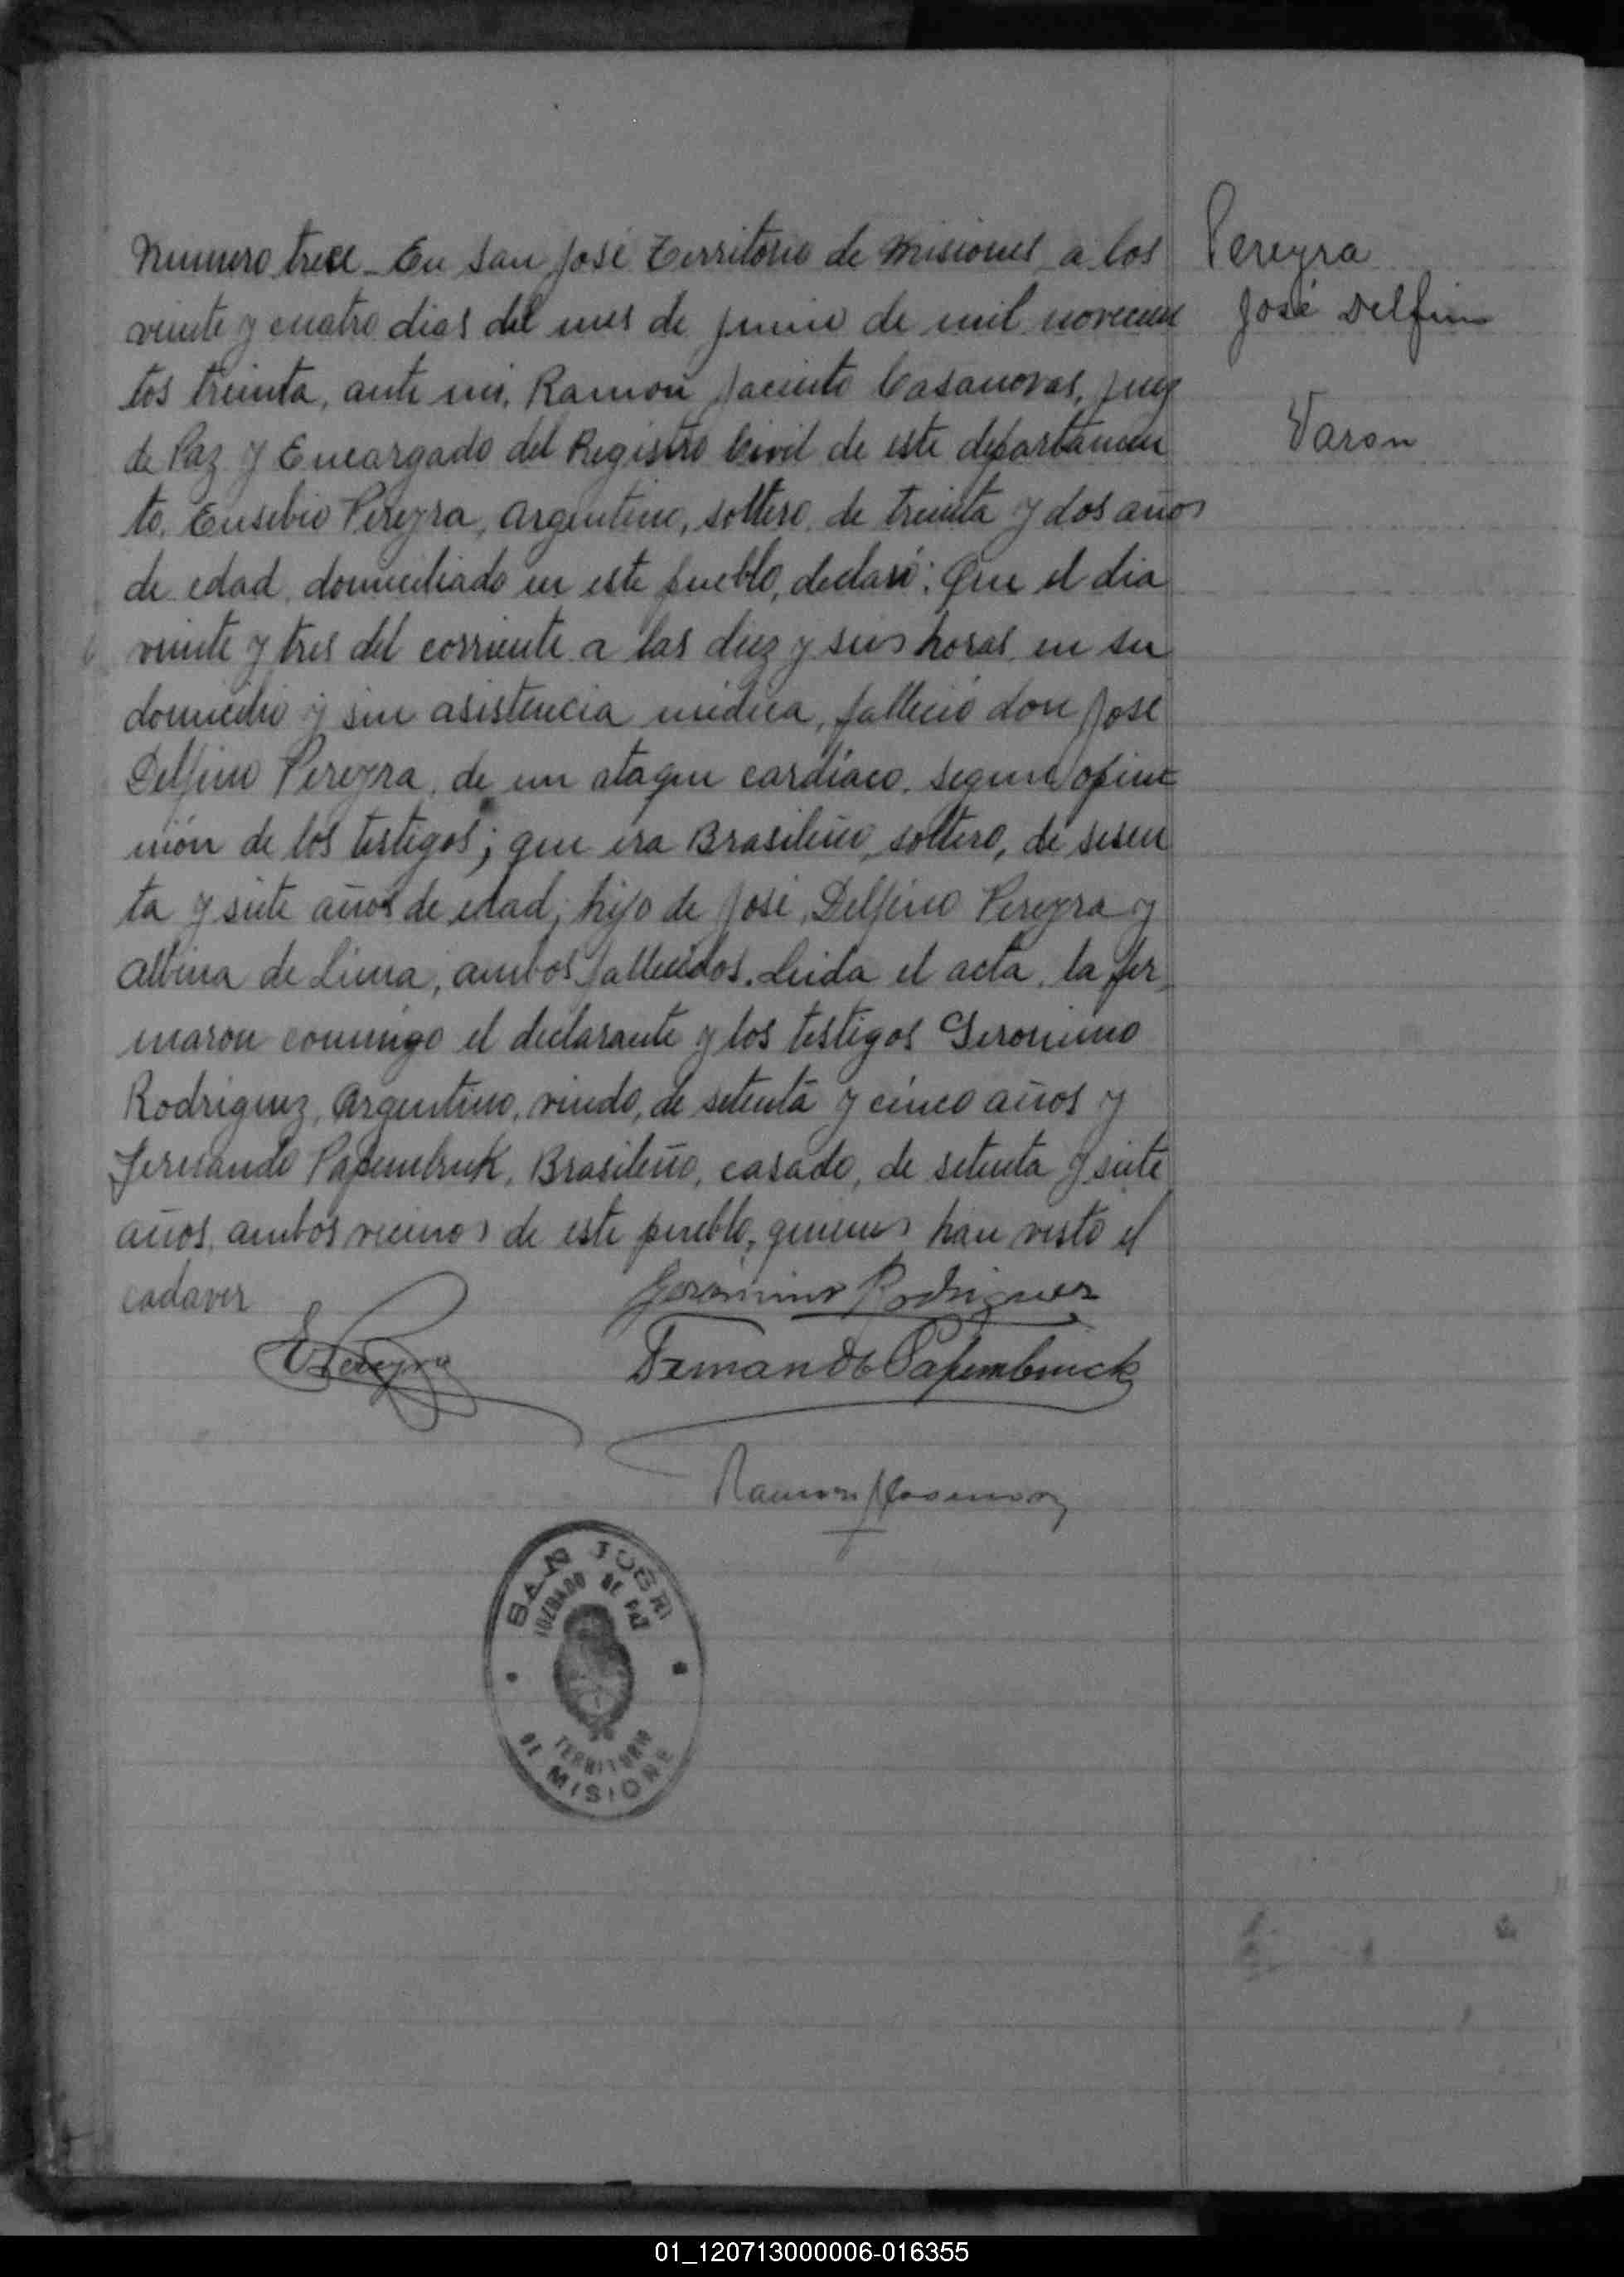 Numero trece_ En San José Territorio de Misiones a los
veinte y cuatro dias del mes de junio de mil novecien
tos treinta, ante mi, Ramon Jacinto Casanovas, juez
de Paz y Encargado del Registro Civil de este departamen
to, Eusebio Pereyra, Argentino, soltero, de treinta y dos años
de edad, domiciliado en este pueblo, declaró: Que el dia
veinte y tres del corriente a las diez y seis horas, en su
domicilio y sin asistencia médica, falleció don José
Delfino Pereyra, de un ataque cardíaco, segun opini
nión de los testigos; que era Brasileño, soltero, de sesen
ta y siete años de edad, hijo de José Delfino Pereyra y
Albina de Lima, ambos fallecidos. Leida el acta, la fir
maron conmigo el declarante y los testigos Geronimo
Rodriguez, Argentino, viudo, de setenta y cinco años y
Fernando Papembruk, Brasileño, casado, de setenta y siete
años, ambos vecinos de este pueblo, quienes han visto el
cadaver
Pereyra
José Delfino
Varon
Geronimo Rodriguez
E Pereyra
Fernando Papembruck
Ramon J Casanovas
SAN JOSE
JUZGADO DE PAZ
TERRITORIO
DE MISIONES
01_120713000006-016355